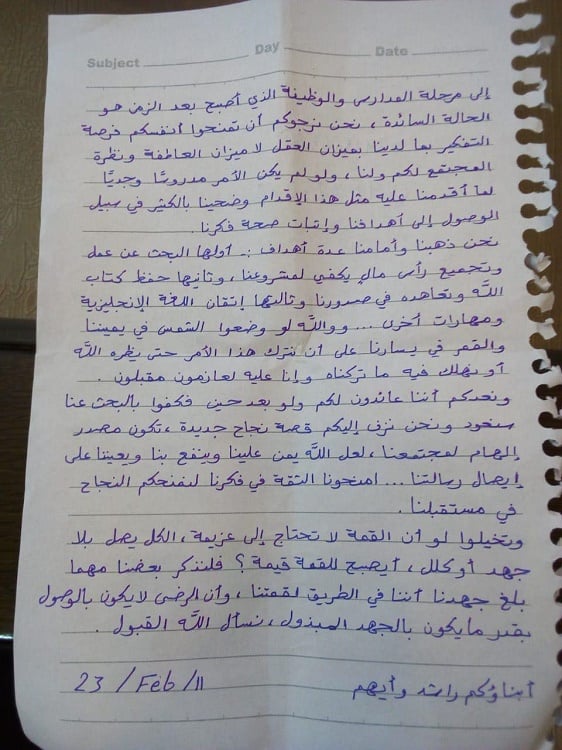 Subject Day Date
إلى مرحلة المدارس والوظيفة الذي أصبح بعد الزمن هو
الحالة السائدة، نحن نرجوكم أن تمنحوا أنفسكم فرصة
التفكير بما لدينا بميزان العقل لا ميزان العاطفة ونظرة
المجتمع لكم ولنا، ولو لم يكن الأمر مدروسًا وجديًّا
لما أقدمنا عليه مثل هذا الإقدام وضحينا بالكثير في سبيل
الوصول إلى أهدافنا وإثبات صحة فكرنا.
نحن ذهبنا وأمامنا عدة أهداف :- أولها البحث عن عمل
وتجميع رأس مالٍ يكفي لمشروعنا، وثانيها حفظ كتاب
الله وتعاهده في صدورنا وثالثها إتقان اللغة الإنجليزية
ومهارات أخرى ... ووالله لو وضعوا الشمس في يميننا
والقمر في يسارنا على أن نترك هذا الأمر حتى يظهره الله
أو نهلك فيه ما تركناه وإنا عليه لعازمون مقبلون.
ونعدكم أننا عائدون لكم ولو بعد حين فكفوا بالبحث عنا
سنعود ونحن نزف إليكم قصة نجاح جديدة، تكون مصدر
إلهام لمجتمعنا، لعل الله يمن علينا وينفع بنا ويعيننا على
إيصال رسالتنا ... امنحونا الثقة في فكرنا لنمنحكم النجاح
في مستقبلنا.
وتخيلوا لو أن القمة لا تحتاج إلى عزيمة، الكل يصل بلا
جهد أو كلل، أيصبح للقمة قيمة؟ فلنذكر بعضنا مهما
بلغ جهدنا أننا في الطريق لقمتنا، وأن الرضى لا يكون بالوصول
بقدر ما يكون بالجهد المبذول، نسأل الله القبول.
أبناؤكم راشد وأيهم
23 / Feb / 11